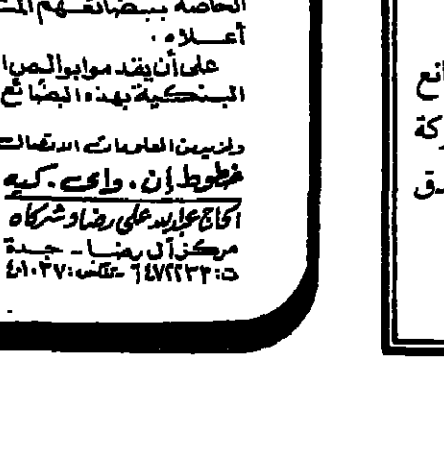 الخاصة ببضائعهم
أعلاه .
على أن يقدموا بوالص
البنكية بهذه البضائع
ولمزيد من المعلومات الاتصال
خطوط إن . واى . كيه
الحاج عبدالله على رضا وشركاه
مركز آل رضا - جدة
ت: ٦٤٧٢٢٣٣ تلكس: ٤٠١٠٣٧